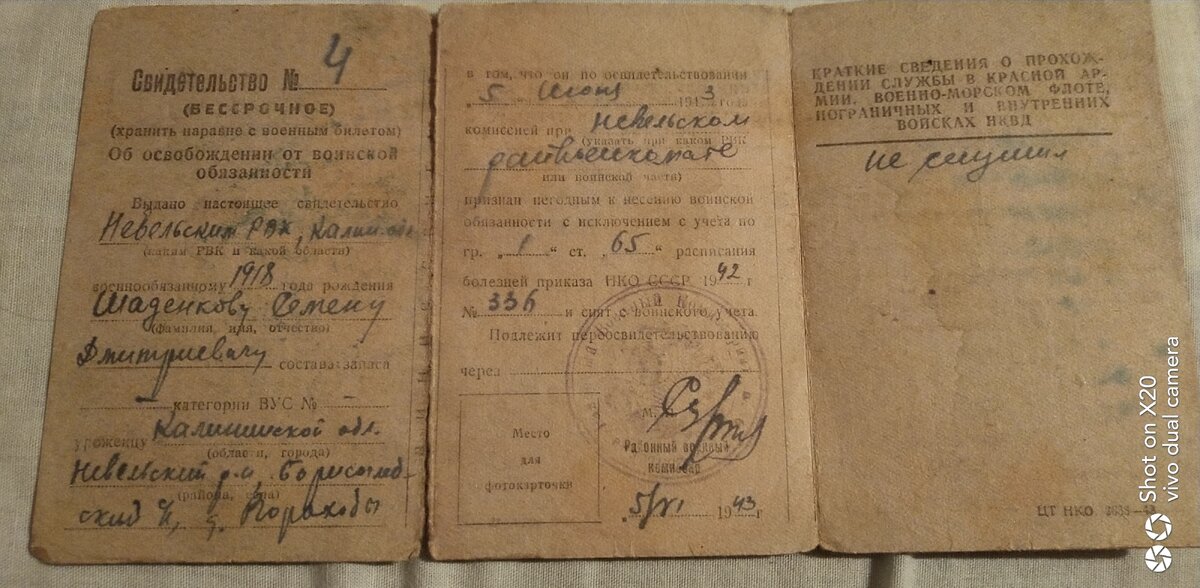 Свидетельство № 4
(БЕССРОЧНОЕ)
(хранить наравне с военным билетом)
Об освобождении от воинской
обязанности
Выдано настоящее свидетельство
Невельским РВК, Калин. обл.
(каким РВК и какой области)
военнообязанному 1918 года рождения
Шаденкову Семену
(фамилия имя, отчество)
Дмитриевичу состава запаса
категории ВУС №
уроженцу Калининской обл.
(области, города)
Невельский р-н, Борисоглеб-
(района, села)
ский с/с, д.
в том, что он по освидетельствовании
"5" Июня 1943 года
комиссией при Невельском
(указать при каком РВК
райвоенкомате
или воинской части)
признан негодным к несению воинской
обязанности с исключением с учета по
гр. „1“ ст. „65“ расписания
болезней приказа НКО СССР 1942 г
№ 336 и снят с воинского учета.
Подлежит переосвидетельствованию
через
М. П.
Районный военный
комиссар
Место
для
фотокарточки
„5/VI 1943 г
КРАТКИЕ СВЕДЕНИЯ О ПРОХОЖ-
ДЕНИИ СЛУЖБЫ В КРАСНОЙ АР-
МИИ, ВОЕННО-МОРСКОМ ФЛОТЕ,
ПОГРАНИЧНЫХ И ВНУТРЕННИХ
ВОЙСКАХ НКВД
не служил
ЦТ НКО
Shot on X20
vivo dual camera